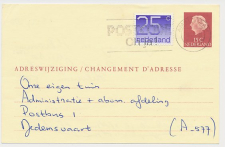 POST
CITY
25 c
nederland
15c
NEDERLAND
ADRESWIJZIGING / CHANGEMENT D'ADRESSE
Onze eigen tuin
Administratie + abonn. afdeling
Postbus 1
Dedemsvaart
(A-577)